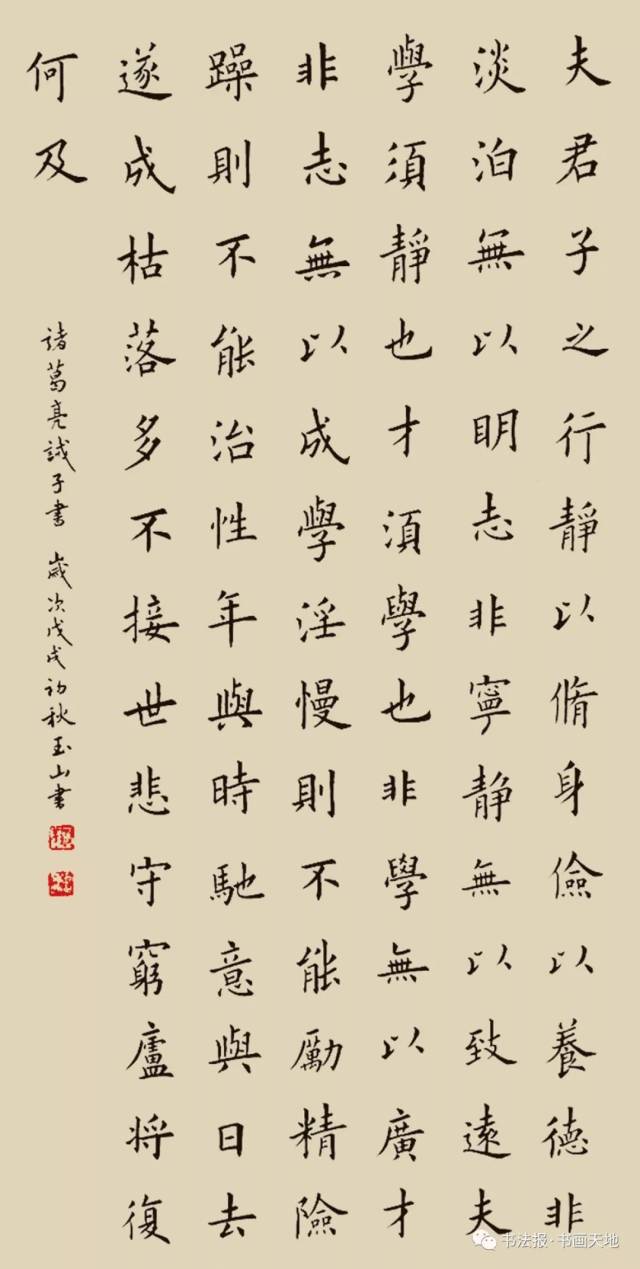 夫君子之行靜以脩身儉以養德非
淡泊無以明志非寧靜無以致遠夫
學須靜也才須學也非學無以廣才
非志無以成學淫慢則不能勵精險
躁則不能治性年與時馳意與日去
遂成枯落多不接世悲守窮廬將復
何及
諸葛亮誡子書 歲次戊戌初秋玉山書
书法报·书画天地